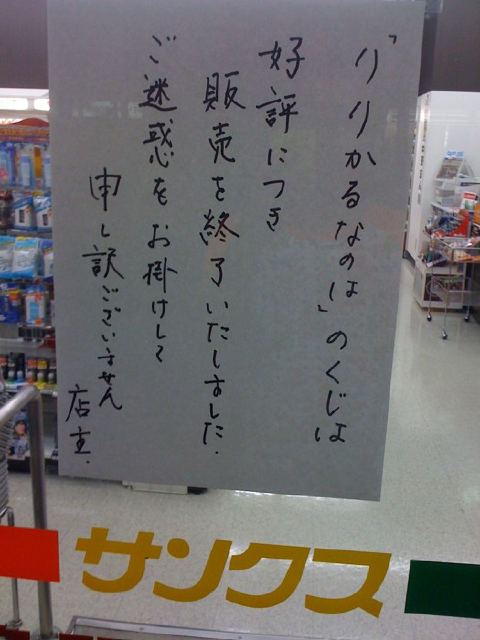 「りりかるなのは」のくじは
好評につき
販売を終了いたしました.
ご迷惑をお掛けして
申し訳ございません
店主.
サンクス